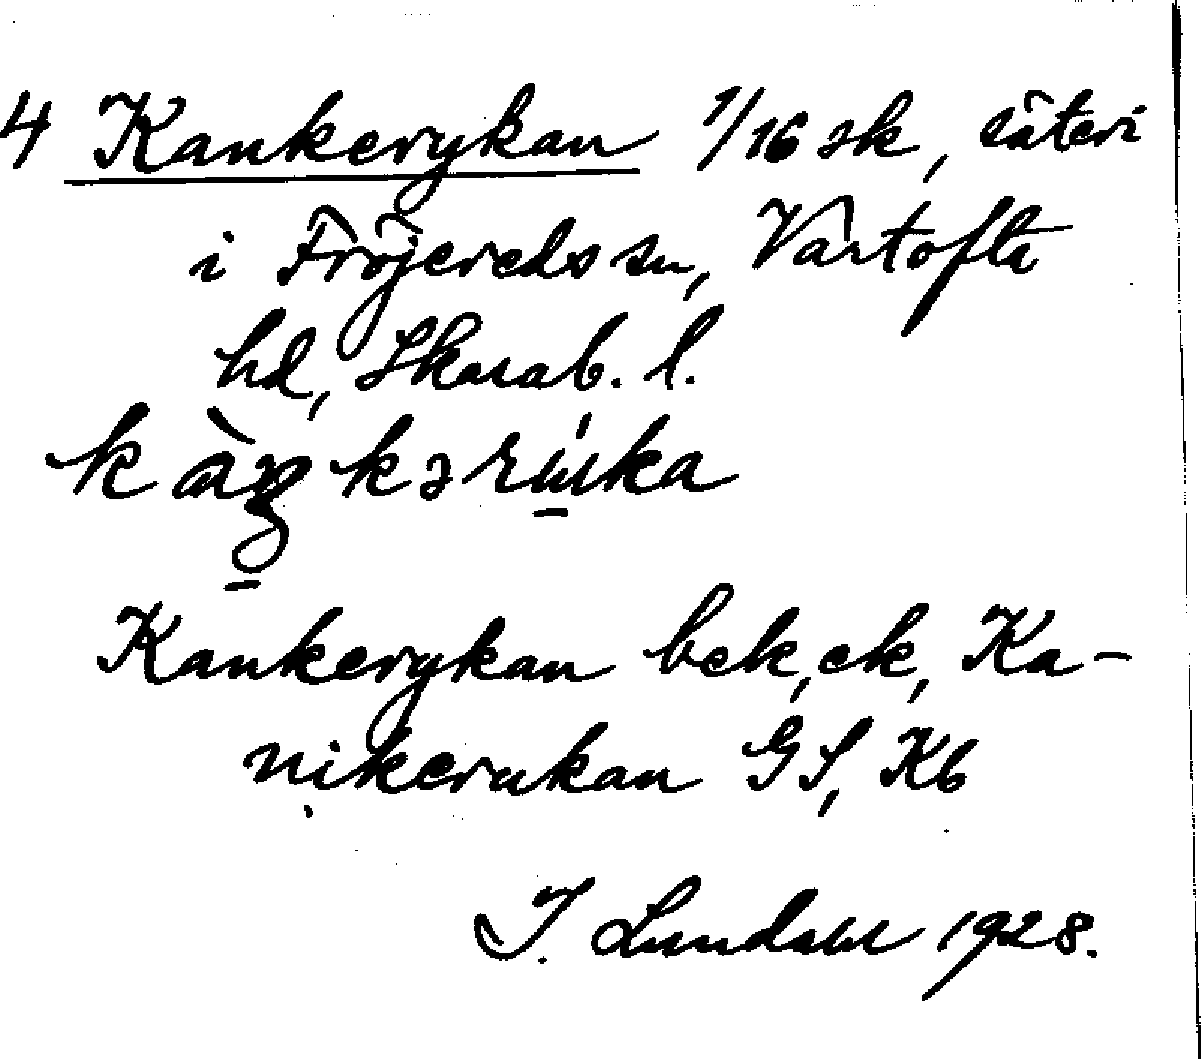 4 Kankerykan 1/16 sk, säteri
i Fröjereds sn, Vartofta
hd, Skarab. l.
Kankerykan bek, ek, Ka-
nikerukan GS, Kb
I. Lundahl 1928.